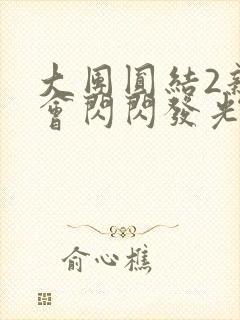 大團圓結2
會閃閃發光
俞心樵